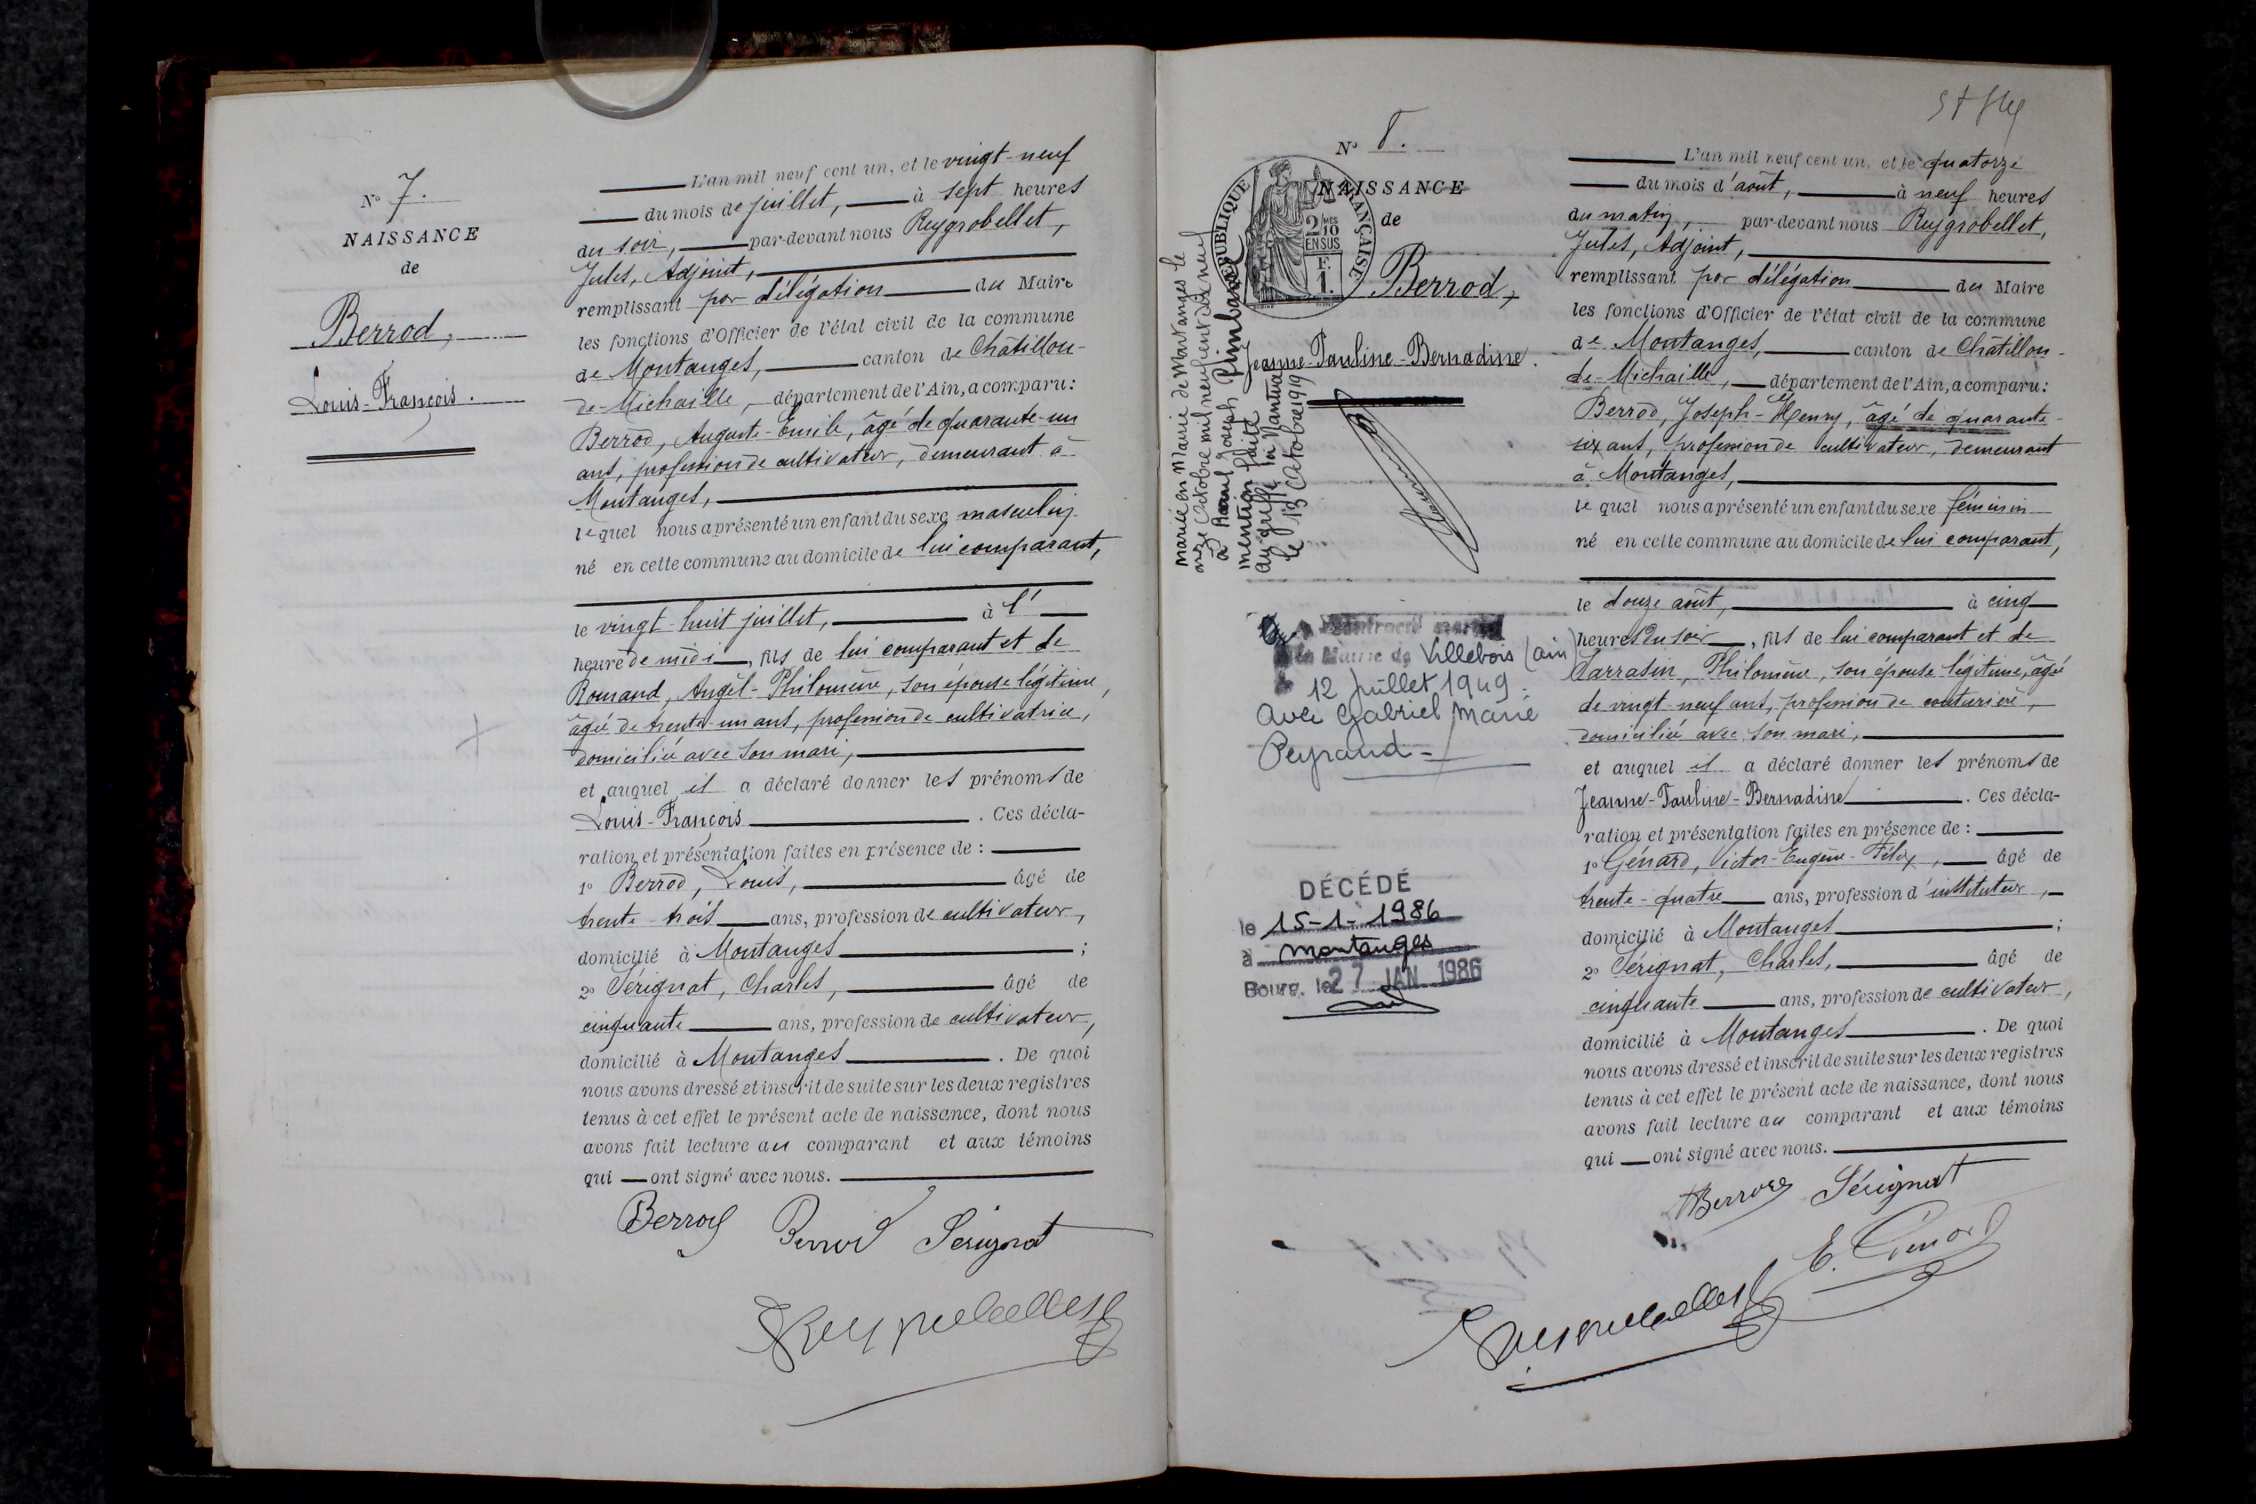 N° 7.
NAISSANCE
de
Berrod,
Louis-François.
L'an mil neuf cent un, et le vingt-neuf
du mois de juillet, à sept heures
du soir, par-devant nous Reygrobellet,
Jules, Adjoint,
remplissant par délégation du Maire
les fonctions d'Officier de l'état civil de la commune
de Montanges, canton de Châtillon-
de-Michaille, département de l'Ain, a comparu:
Berrod, Auguste-Emile, âgé de quarante-un
ans, profession de cultivateur, demeurant à
Montanges,
lequel nous a présenté un enfant du sexe masculin
né en cette commune au domicile de lui comparant,
le vingt-huit juillet, à l'
heure de midi, fils de lui comparant et de
Romand, Angèl-Philomène, son épouse légitime,
âgée de trente-un ans, profession de cultivatrice,
domiciliée avec son mari,
et auquel il a déclaré donner les prénoms de
Louis-François. Ces décla-
ration et présentation faites en présence de :
1° Berrod, Louis, âgé de
trente-trois ans, profession de cultivateur,
domicilié à Montanges ;
2° Sérignat, Charles, âgé de
cinquante ans, profession de cultivateur,
domicilié à Montanges. De quoi
nous avons dressé et inscrit de suite sur les deux registres
tenus à cet effet le présent acte de naissance, dont nous
avons fait lecture au comparant et aux témoins
qui ont signé avec nous.
Berrod Berrod Serignat
Reygrobellet
N° 8.
RÉPUBLIQUE FRANÇAISE
2/10 EN SUS
F. 1.
NAISSANCE
de
Berrod,
Jeanne-Pauline-Bernadine.
mariée en Mairie de Montanges le
onze octobre mil neuf cent dix neuf
à Raoul Joseph
mention faite
au greffe à Nantua
le 13 octobre 1919
la Mairie de Villebois (ain)
12 Juillet 1949 :
avec Gabriel Marie
Peyraud
DÉCÉDÉ
le 15-1-1986
à montanges
Bourg, le 27 JAN. 1986
L'an mil neuf cent un, et le quatorze
du mois d'août, à neuf heures
du matin, par-devant nous Reygrobellet,
Jules, Adjoint,
remplissant par délégation du Maire
les fonctions d'Officier de l'état civil de la commune
de Montanges, canton de Châtillon-
de-Michaille, département de l'Ain, a comparu:
Berrod, Joseph-Henry, âgé de quarante-
six ans, profession de cultivateur, demeurant
à Montanges,
lequel nous a présenté un enfant du sexe féminin
né en cette commune au domicile de lui comparant,
le douze août, à cinq
heures du soir, fils de lui comparant et de
Sarrasin, Philomène, son épouse légitime, âgée
de vingt-neuf ans, profession de couturière,
domiciliée avec son mari,
et auquel il a déclaré donner les prénoms de
Jeanne-Pauline-Bernadine. Ces décla-
ration et présentation faites en présence de :
1° Génard, Victor-Eugène-Félix, âgé de
trente-quatre ans, profession d'instituteur,
domicilié à Montanges ;
2° Sérignat, Charles, âgé de
cinquante ans, profession de cultivateur,
domicilié à Montanges. De quoi
nous avons dressé et inscrit de suite sur les deux registres
tenus à cet effet le présent acte de naissance, dont nous
avons fait lecture au comparant et aux témoins
qui ont signé avec nous.
Berrod Sérignat
E. Génard
Reygrobellet